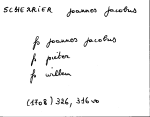 SCHERRIER joannes jacobus
fs joannes jacobus
fs pieter
fs willem
(1708) 326, 316 vo